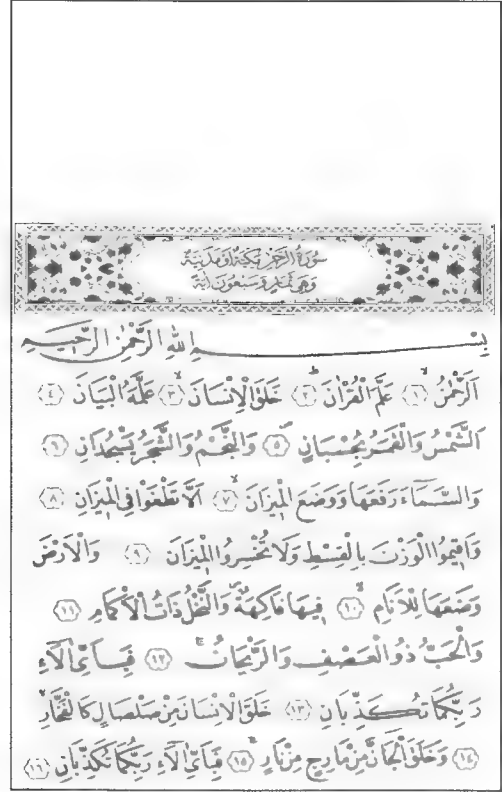 سُورَةُ الرَّحْمٰنِ مَكِّيَّةٌ اَوْ مَدَنِيَّةٌ
وَهِيَ ثَمَانٍ وَسَبْعُونَ اٰيَةً
بِسْمِ اللّٰهِ الرَّحْمٰنِ الرَّحِيمِ
اَلرَّحْمٰنُۙ ﴿١﴾ عَلَّمَ الْقُرْاٰنَۜ ﴿٢﴾ خَلَقَ الْاِنْسَانَۙ ﴿٣﴾ عَلَّمَهُ الْبَيَانَ ﴿٤﴾
اَلشَّمْسُ وَالْقَمَرُ بِحُسْبَانٍۖ ﴿٥﴾ وَالنَّجْمُ وَالشَّجَرُ يَسْجُدَانِ ﴿٦﴾
وَالسَّمَٓاءَ رَفَعَهَا وَوَضَعَ الْمِيزَانَۙ ﴿٧﴾ اَلَّا تَطْغَوْا فِي الْمِيزَانِ ﴿٨﴾
وَاَقِيمُوا الْوَزْنَ بِالْقِسْطِ وَلَا تُخْسِرُوا الْمِيزَانَ ﴿٩﴾ وَالْاَرْضَ
وَضَعَهَا لِلْاَنَامِۙ ﴿١٠﴾ فِيهَا فَاكِهَةٌۖ وَالنَّخْلُ ذَاتُ الْاَكْمَامِ ﴿١١﴾
وَالْحَبُّ ذُو الْعَصْفِ وَالرَّيْحَانُۚ ﴿١٢﴾ فَبِاَيِّ اٰلَٓاءِ
رَبِّكُمَا تُكَذِّبَانِ ﴿١٣﴾ خَلَقَ الْاِنْسَانَ مِنْ صَلْصَالٍ كَالْفَخَّارِۙ
﴿١٤﴾ وَخَلَقَ الْجَٓانَّ مِنْ مَارِجٍ مِنْ نَارٍۚ ﴿١٥﴾ فَبِاَيِّ اٰلَٓاءِ رَبِّكُمَا تُكَذِّبَانِ ﴿١٦﴾